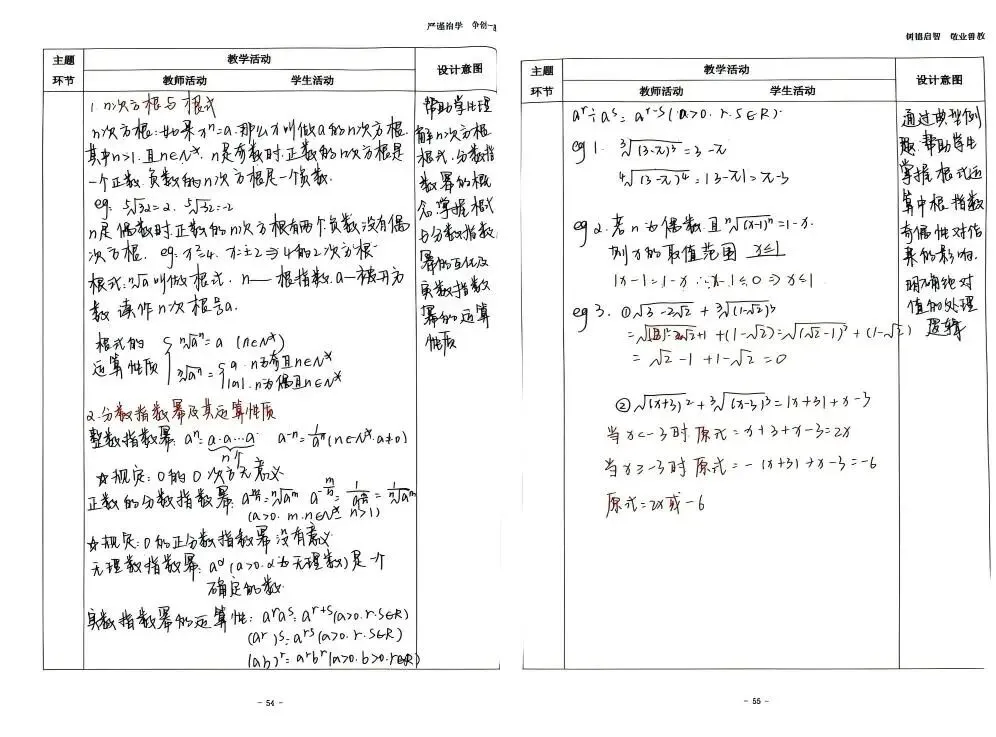 严谨治学 争创一
主题
环节
教学活动
教师活动 学生活动
设计意图
1. n次方根与根式
n次方根:如果xⁿ=a.那么x叫做a的n次方根
其中n>1.且n∈N*. n是奇数时.正数的n次方根是
一个正数.负数的n次方根是一个负数.
eg: ⁵√32=2. ⁵√32=-2
n是偶数时.正数的n次方根有两个.负数没有偶
次方根. eg: x²=4. x=±2⇒4的2次方根
根式:ⁿ√a叫做根式. n——根指数.a—被开方
数 读作n次根号a.
根式的
运算性质
ⁿ√aⁿ=a (n∈N*)
ⁿ√aⁿ={a. n为奇且n∈N*
|a|. n为偶且n∈N*
2.分数指数幂及其运算性质
整数指数幂: aⁿ=a·a…a a⁻ⁿ=1/aⁿ(n∈N*.a≠0)
n个
☆规定:0的0次方无意义
正数的分数指数幂: a^(m/n)=ⁿ√aᵐ a^(-m/n)=1/a^(m/n)=1/ⁿ√aᵐ
(a>0. m.n∈N* n>1)
☆规定:0的正分数指数幂没有意义
无理数指数幂: a^α(a>0.α为无理数)是一个
确定的数.
实数指数幂的运算性: aʳaˢ=aʳ⁺ˢ(a>0.r.s∈R)
(aʳ)ˢ=aʳˢ(a>0.r.s∈R)
(ab)ʳ=aʳbʳ(a>0.b>0.r∈R)
帮助学生理
解n次方根
根式.分数指
数幂的概
念.掌握根式
与分数指数
幂的互化及
实数指数
幂的运算
性质
- 54 -
树德启智 敬业善教
主题
环节
教学活动
教师活动 学生活动
设计意图
aʳ÷aˢ=aʳ⁻ˢ(a>0. r.s∈R).
eg 1. ³√(3-π)³=3-π
⁴√(3-π)⁴=|3-π|=π-3
eg 2.若n为偶数且ⁿ√(x-1)ⁿ=1-x.
则x的取值范围 x≤1
|x-1|=1-x ∴x-1≤0⇒x≤1
eg 3. ①√3-2√2+³√(1-√2)³
=√(√2)²-2√2+1+(1-√2)=√(√2-1)²+(1-√2)
=√2-1+1-√2=0
②√(x+3)²+³√(x-3)³=|x+3|+x-3
当x<-3时.原式=x+3+x-3=2x
当x≥-3时原式=-(x+3)+x-3=-6
原式=2x或-6
通过典型例
题.帮助学生
掌握根式运
算中根指数
奇偶性对结
果的影响.
明确绝对
值的处理
逻辑
- 55 -